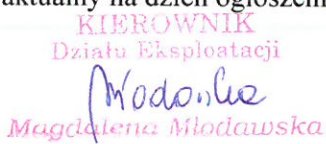 aktualny na dzień ogłoszeni
KIEROWNIK
Działu Eksploatacji
Magdalena Młodawska